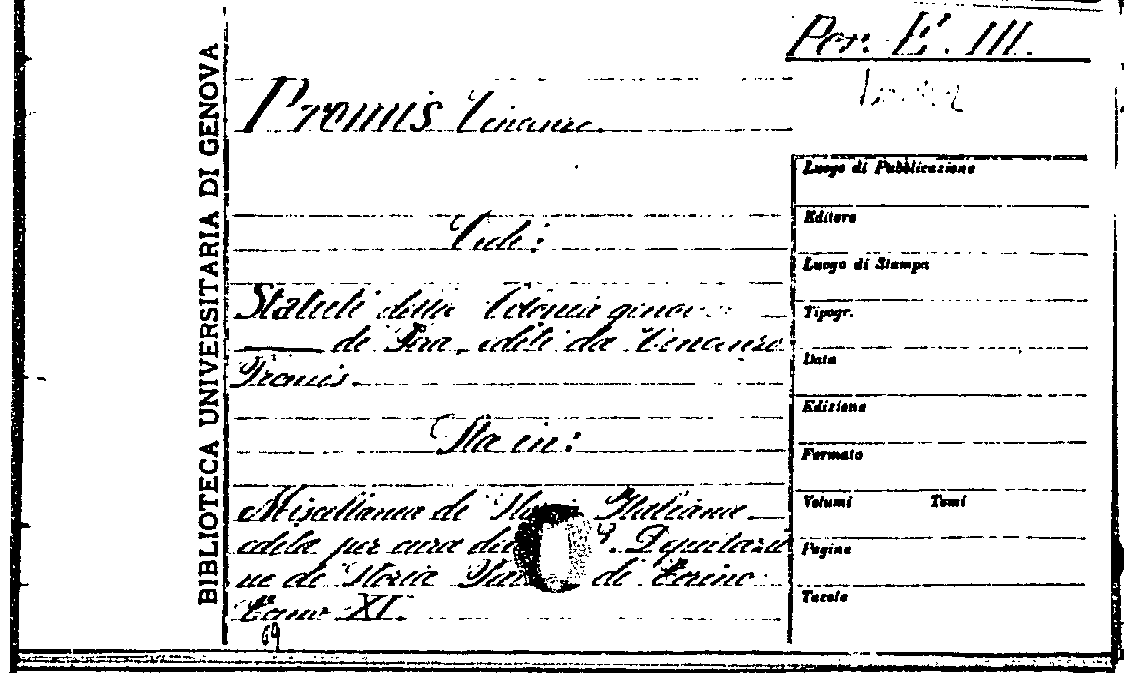 BIBLIOTECA UNIVERSITARIA DI GENOVA
Per. E. III.
Promis Vincenzo.
Vedi:
Statuti della Colonia genov
di Pera, editi da Vincenzo
Promis.
Sta in:
Miscellanea di Storia Italiana
edita per cura di Deputazio
ne di Storia di Torino
Tomo XI.
69
Luogo di Pubblicazione
Editore
Luogo di Stampa
Tipogr.
Data
Edizione
Formato
Volumi Tomi
Pagine
Tavole